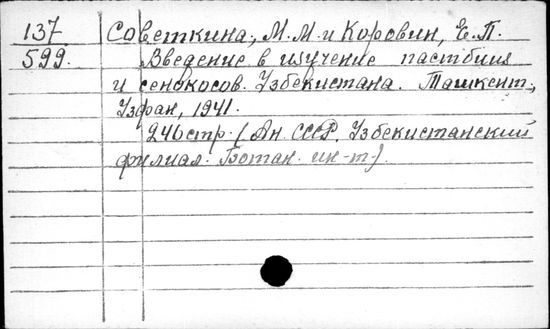 137 Советкина, М.М. и Коровин, Е.П.
599. Введение в изучение пастбищ
и сенокосов Узбекистана. Ташкент,
Узфан, 1941.
246 стр. (Ан СССР. Узбекистанский
филиал. Ботан. ин-т).